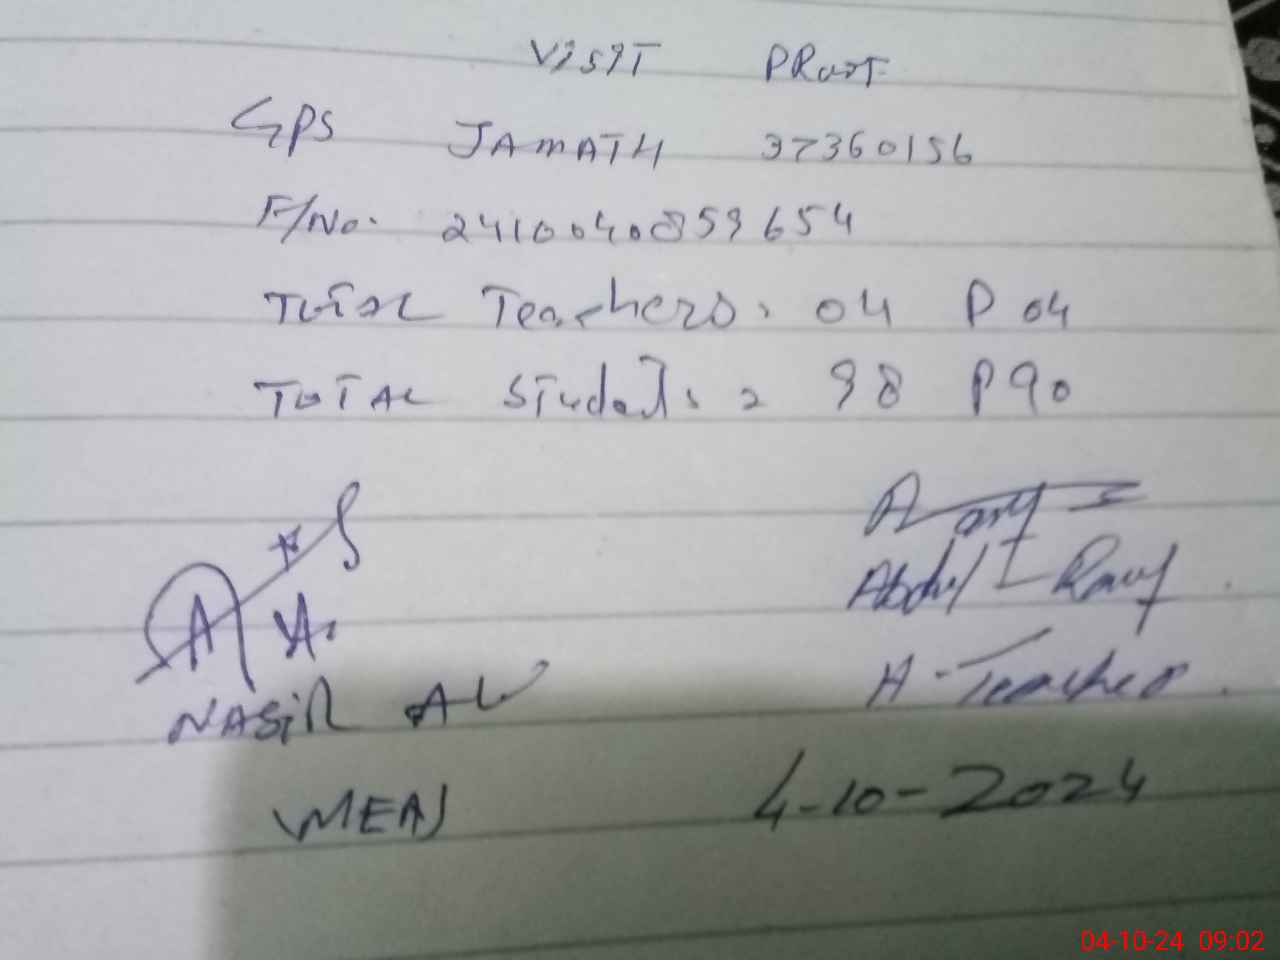 VISIT PROOF
GPS JAMATH 37360156
F/No. 2410040859654
TOTAL Teachers. 04 P 04
TOTAL Students = 98 P 90
Abdul Rauf
NASIR ALI
H-Teacher
MEAS
4-10-2024
04-10-24 09:02